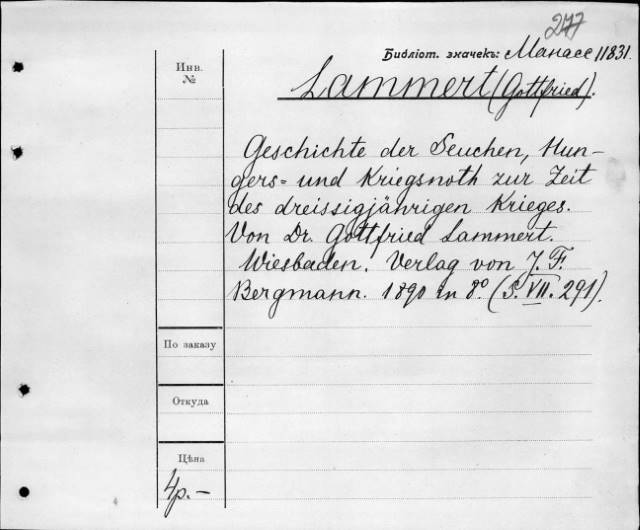 277
Библіот. значекъ: Манасе 11831.
Инв.
№
Lammert (Gottfried).
Geschichte der Seuchen, Hun-
gers= und Kriegsnoth zur Zeit
des dreissigjährigen Krieges.
Von Dr. Gottfried Lammert.
Wiesbaden. Verlag von J. F.
Bergmann. 1890 in 8° (S. VII. 291).
По заказу
Откуда
Цѣна
4р.–